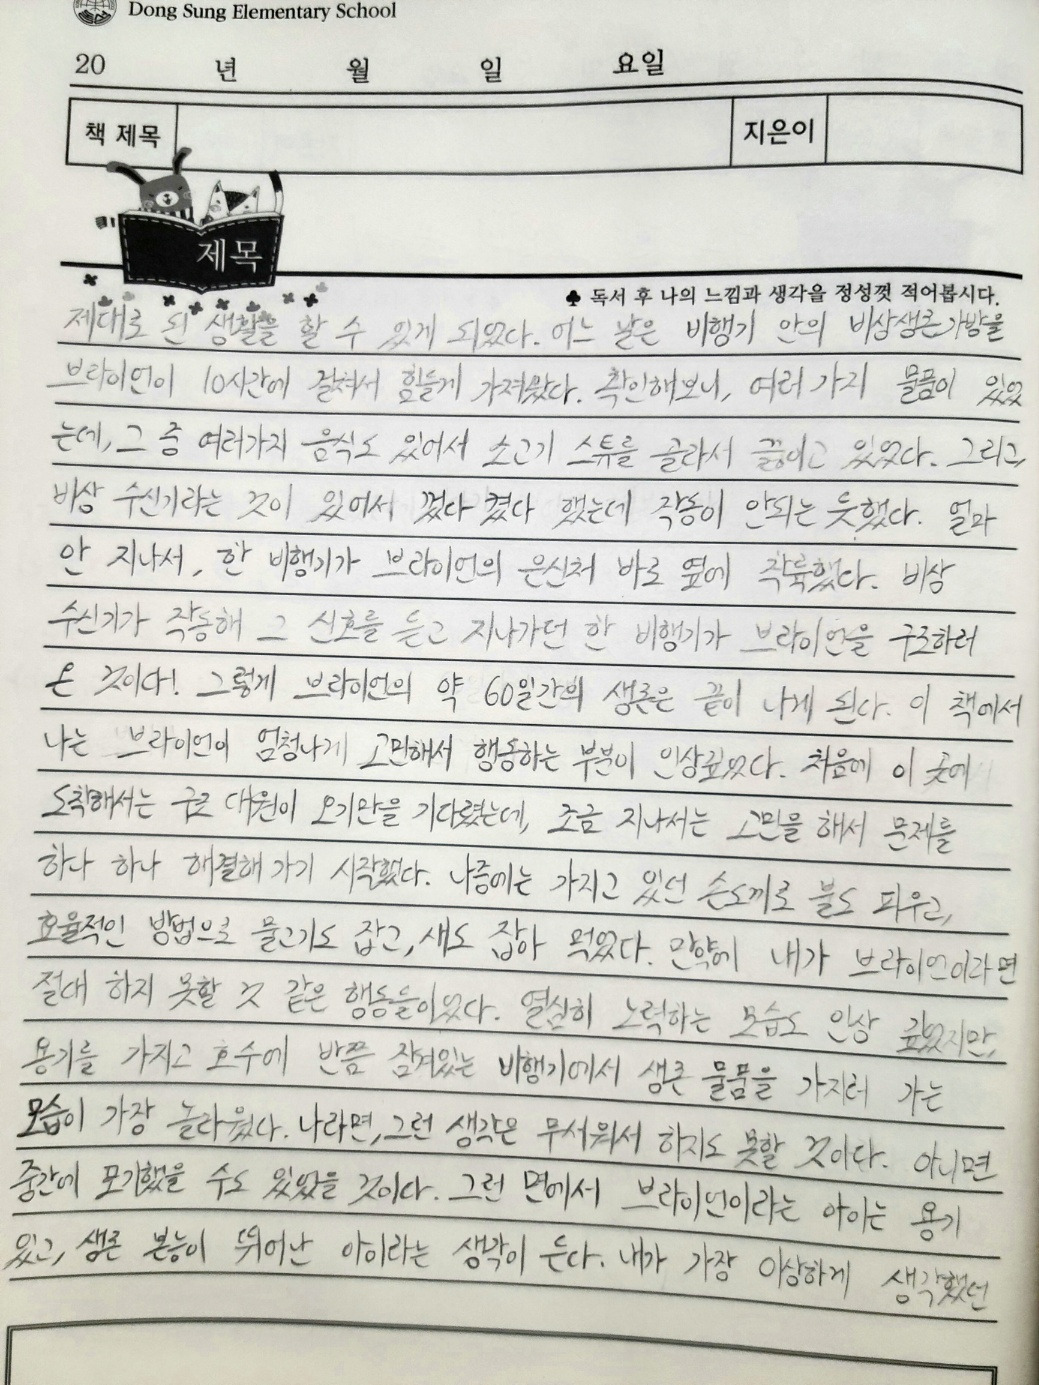 Dong Sung Elementary School
20 년 월 일 요일
책 제목 지은이
제목
♣ 독서 후 나의 느낌과 생각을 정성껏 적어봅시다.
제대로 된 생활을 할 수 있게 되었다. 어느 날은 비행기 안의 비상생존가방을
브라이언이 10시간에 걸쳐서 힘들게 가져왔다. 확인해보니, 여러 가지 물품이 있었
는데, 그 중 여러가지 음식도 있어서 소고기 스튜를 골라서 끓이고 있었다. 그리고,
비상 수신기라는 것이 있어서 껐다 켰다 했는데 작동이 안되는 듯했다. 얼마
안 지나서, 한 비행기가 브라이언의 은신처 바로 옆에 착륙했다. 비상
수신기가 작동해 그 신호를 듣고 지나가던 한 비행기가 브라이언을 구조하러
온 것이다! 그렇게 브라이언의 약 60일간의 생존은 끝이 나게 된다. 이 책에서
나는 브라이언이 엄청나게 고민해서 행동하는 부분이 인상깊었다. 처음에 이 곳에
도착해서는 구조 대원이 오기만을 기다렸는데, 조금 지나서는 고민을 해서 문제를
하나 하나 해결해 가기 시작했다. 나중에는 가지고 있던 손도끼로 불도 피우고,
효율적인 방법으로 물고기도 잡고, 새도 잡아 먹었다. 만약에 내가 브라이언이라면
절대 하지 못할 것 같은 행동들이었다. 열심히 노력하는 모습도 인상 깊었지만,
용기를 가지고 호수에 반쯤 잠겨있는 비행기에서 생존 물품을 가지러 가는
모습이 가장 놀라웠다. 나라면, 그런 생각은 무서워서 하지도 못할 것이다. 아니면
중간에 포기했을 수도 있었을 것이다. 그런 면에서 브라이언이라는 아이는 용기
있고, 생존 본능이 뛰어난 아이라는 생각이 든다. 내가 가장 이상하게 생각했던